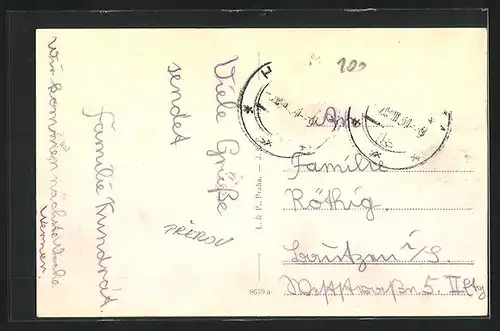 Viele Grüße
sendet
Familie Kundrát.
Wir kommen nächste Woche
200
PŘEROV
L. & P., Praha.
8659 a.
An
Familie
Röthig.
Bautzen i/S.
Weststraße 5. II